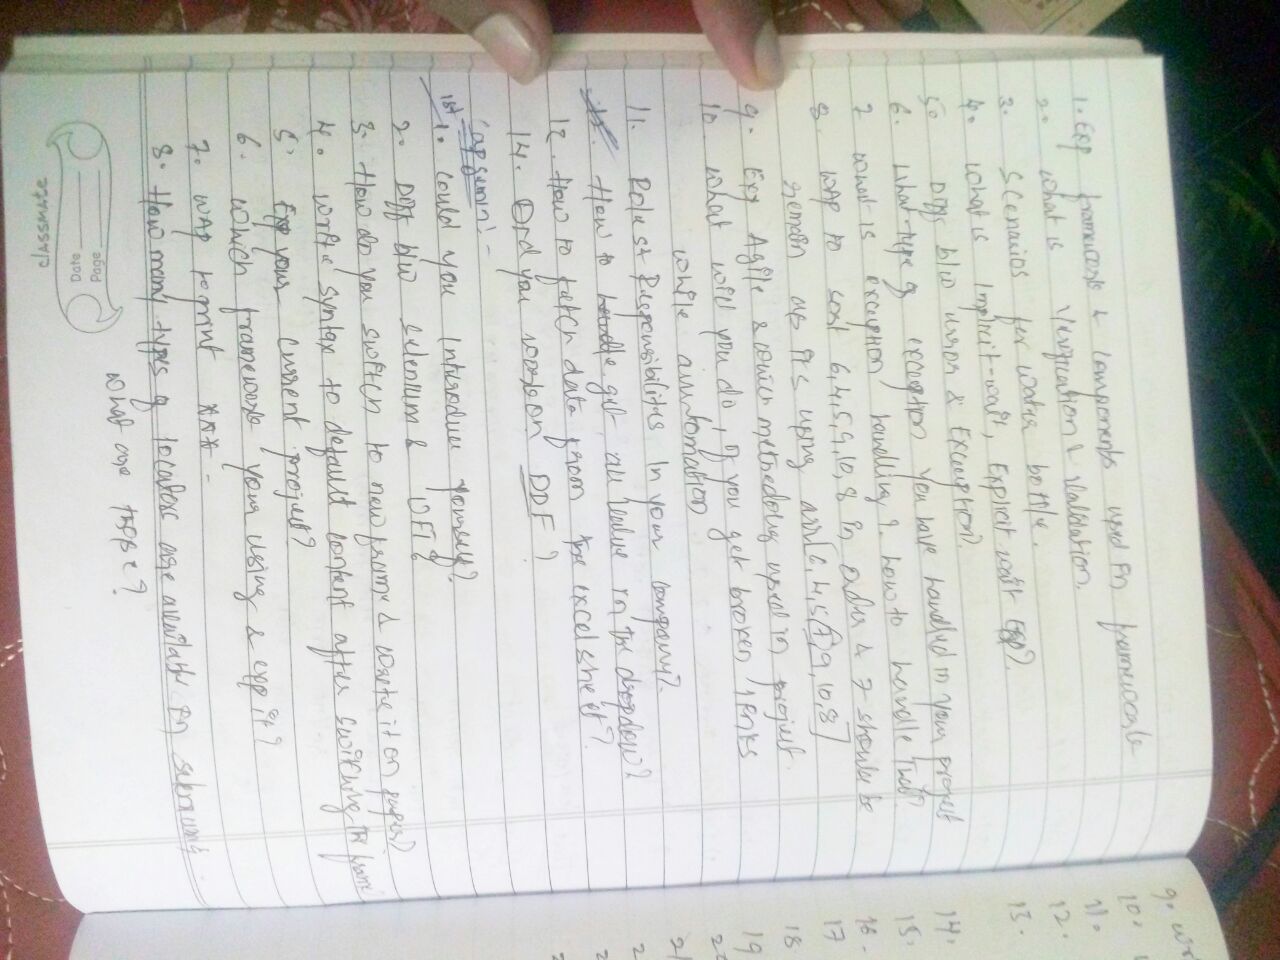 1. Exp framework & components used in framework
2. what is verification & validation.
3. Scenarios for water bottle.
4. what is Implicit-wait, Explicit wait Exp?
5. Diff b/w error & Exception?
6. What type of exception you have handled in your project
7 what is exception handling? how to handle that?
8. WAP to sort 6,4,5,9,10,8 in order & 7 should be
remain as it is using arr[6,4,5,7,9,10,8]
9. Exp Agile & which methodology used in project.
10. what will you do, if you get broken links
while automation
11. Role & Responsibilities in your company?
How to get all value in the dropdown?
12. How to fetch data from the excel sheet?
14. Did you work on DDF?
Capgemini:-
1st
1. Could you Introduce yourself?
2. Diff b/w selenium & QTP
3. How do you switch to new frame & write it on paper?
4. write syntax to default content after switching the frame
5. Exp your current project?
6. Which framework your using & exp it?
7. WAP to print ***-
8. How many types of locators are available in selenium.
what are those?
classmate
Date
Page
9. wr
10.
11.
12.
13.
14.
15.
16.
17
18
19